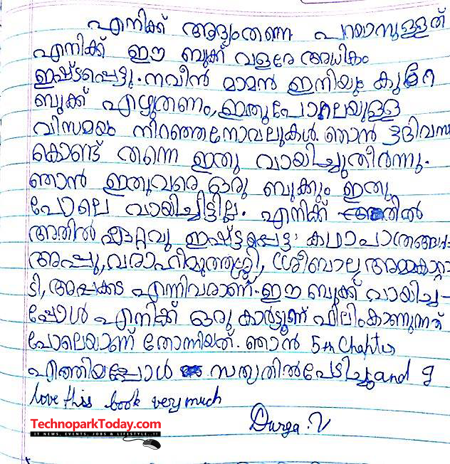 എനിക്ക് ആദ്യംതന്നെ പറയാനുള്ളത്
എനിക്ക് ഈ ബുക്ക് വളരേ അധികം
ഇഷ്ടപ്പെട്ടു. നവീൻ മാമൻ ഇനിയും കുറേ
ബുക്ക് എഴുതണം, ഇതുപോലെയുള്ള
വിസമയം നിറഞ്ഞനോവലുകൾ. ഞാൻ 3ദിവസം
കൊണ്ട് തന്നെ ഇതു വായിച്ചുതീർന്നു.
ഞാൻ ഇതുവരെ ഒരു ബുക്കും ഇതു
പോലെ വായിച്ചിട്ടില്ല. എനിക്ക്
അതിൽ ഏറ്റവു ഇഷ്ട്ടപ്പെട്ട കഥാപാത്രങ്ങൾ:
അപ്പു, വരാഹിമുത്തശ്ശി, ശ്രീബാല, അമ്മകാറ്റാ
ടി, എന്നിവരാണ്. ഈ ബുക്ക് വായിച്ച-
പ്പോൾ എനിക്ക് ഒരു കാർട്ടൂൺ ഫിലിംകാണുന്നത്
പോലെയാണ് തോന്നിയത്. ഞാൻ 5th
എത്തിയപ്പോൾ സത്യതിൽപേടിച്ചു and I
love this book very much
Durga.V
TechnoparkToday.com
IT NEWS, EVENTS, JOBS & LIFESTYLE